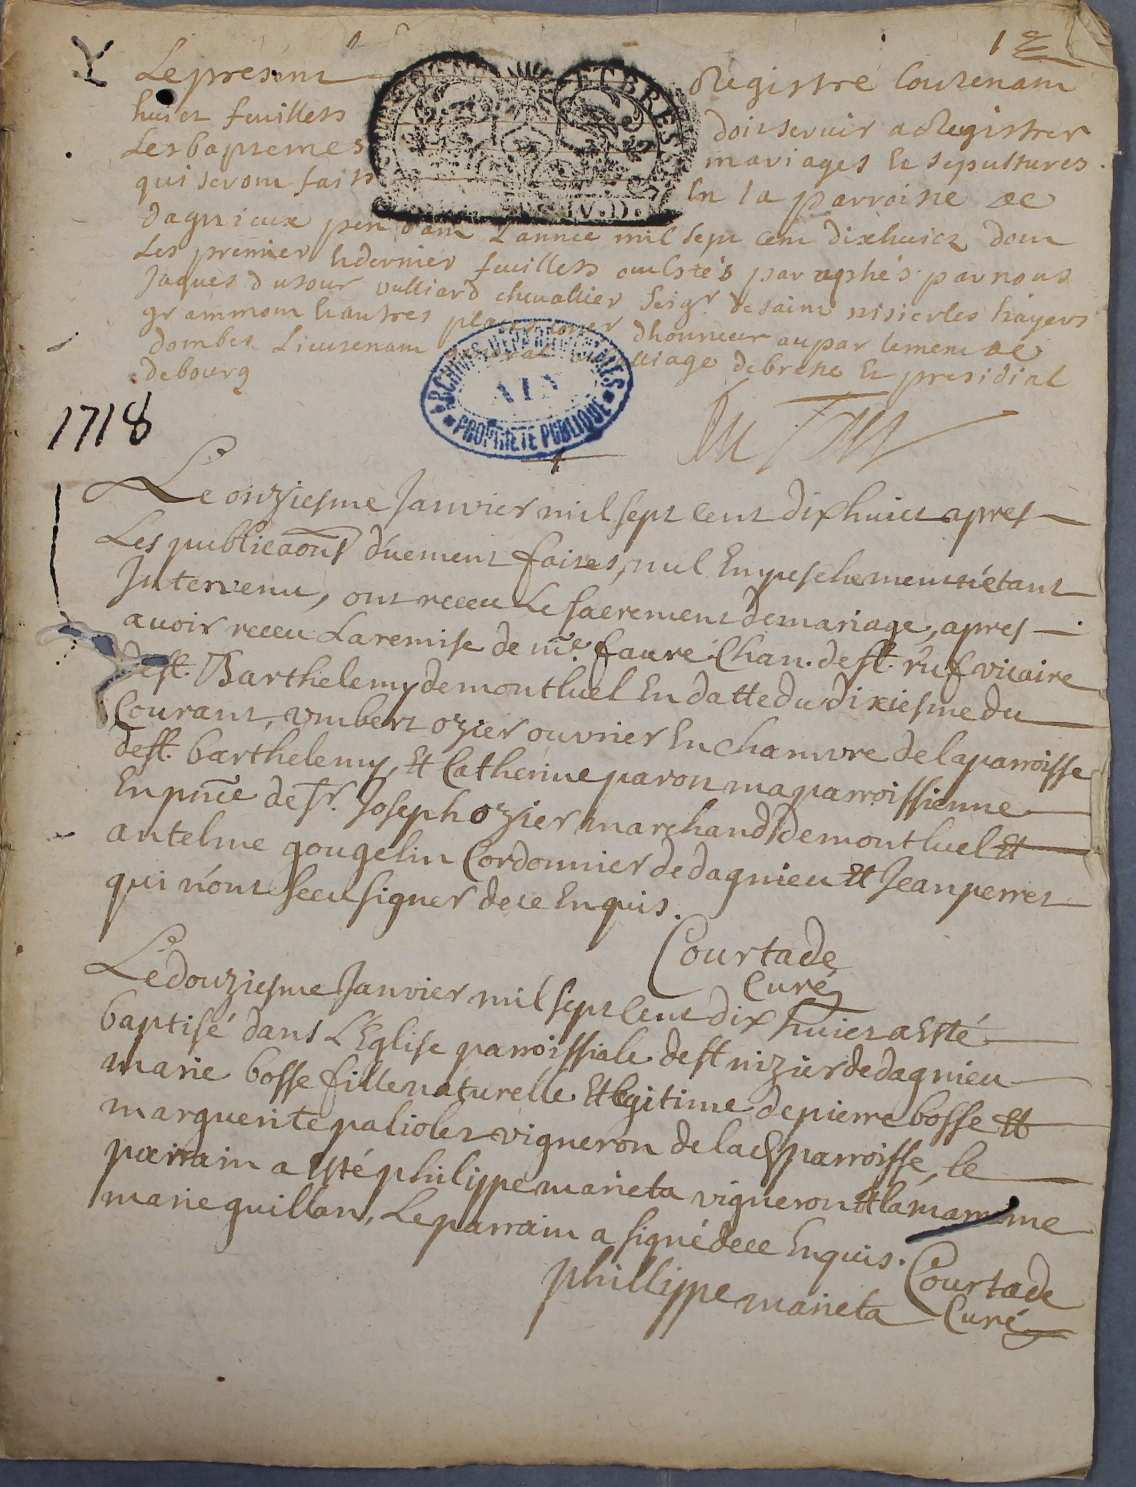 1er
Le present Registre Contenant
huict feuillets doit servir a Registrer
Les baptemes mariages Et sepultures
qui seront faits En la parroisse de
dagnieux pendant L'annee mil sept cent dixhuict dont
Les premier & dernier feuillets ont estés paraphés par nous
Jaques dutour vulliard chevallier seigr de saint nisier les
grammont & autres places d'honneur au parlement de
dombes Lieutenant de bresse Et presidial
de bourg
ARCHIVES DEPARTEMENTALES
AIN
PROPRIÉTÉ PUBLIQUE
1718
Du Tour
Le onziesme Janvier mil sept cent dix huict apres
Les publicaõns düement faites, nul Enpeschement n'étant
Intervenu, ont receu Le sacrement de mariage, apres
avoir receu La remise de mre. faure Chan. de st. ruf vicaire
de st. Barthelemy de montluel En datte du dixiesme du
Courant, umbert ozier ouvrier En chanvre de la parroisse
de st. barthelemy, Et Catherine paron ma parroissienne
En pnce de sr. Joseph ozier marchand de montluel Et
antelme gougelin Cordonnier de dagnieu Et Jean perret
qui n'ont sceu signer de ce Enquis.
Courtade
Curé
Le douziesme Janvier mil sept cent dix huict a Esté
baptisé dans L'Eglise parroissiale de st nizier de dagnieu
marie bosse fille naturelle Et legitime de pierre bosse Et
marguerite paliolet vigneron de lad parroisse, le
parrain a Esté philippe marieta vigneron Et la marreine
marie guillan, Le parrain a signé de ce Enquis.
phillippe marieta Courtade
Curé